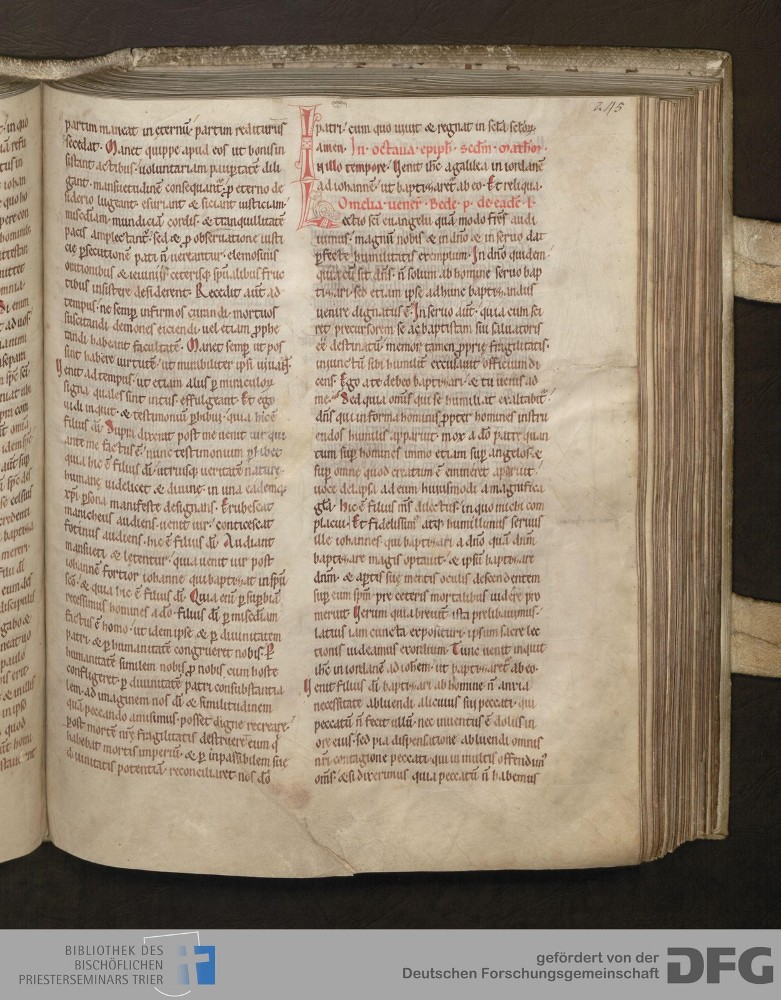 245
partim maneat in eternū partim rediturus
secedat. Manet quippe apud eos ut bonis in
sistant actibus. uoluntariam paupertatē dili
gant. mansuetudinē consequant᷑. ꝑ eterno de
siderio lugeant. esuriant & siciant iusticiam.
misc̄diam. mundiciā cordis. & tranquillitatē
pacis amplectant᷑. sed & ꝓ obseruatione iusti
cię ꝑsecutionē pati n̄ uereantur. elemosinis
orationibus & ieiuniis ceterisq; sp̄ualibus fruc
tibus insistere desiderent. Recedit aut̄ ad
tempus. ne semꝑ infirmos curandi. mortuos
suscitandi. demones eiciendi. uel etiam ꝓphe
tandi habeant facultatē. Manet semꝑ. ut pos
sint habere uirtutē. ut mirabiliter ipsi uiuant.
Venit ad tempus. ut etiam aliis ꝑ miraculoꝝ
signa quales sint intus effulgeant. Et ego
uidi inquit. & testimoniū ꝑhibui. quia hic ē
filius dī. Supra dixerat post me uenit uir qui
ante me factus ē. nunc testimonium ꝑhibet
quia hic ē filius dī. utriusq; ueritatē nature
humanę uidelicet & diuinę. in una eademq;
xp̄i ꝑsona manifeste designans. Erubescat
manicheus audiens. uenit uir. conticescat
fotinus audiens. hic ē filius dī. Audiant
mansueti & lętentur. quia uenit uir post
iohannē fortior iohanne qui baptizat in sp̄u
sc̄o. & quia hic ē filius dī. Quia enī ꝑ suꝑbiā
recessimus homines a dō. filius dī ꝑ misc̄diam
factus ē homo. ut idem ipse & ꝑ diuinitatem
patri. & ꝑ humanitatē congrueret nobis. Per
humanitatē similem nobis. ꝓ nobis cum hoste
confligeret. ꝑ diuinitatē patri consubstantia
lem. ad imaginem nos dī & similitudinem
quā peccando amisimus. posset digne recreare.
Post mortē nr̄ę fragilitatis destrueret eum q̇
habebat mortis imperiū. & ꝑ inpassibilem suę
diuinitatis potentiā. reconciliaret nos dō
patri. cum quo uiuit & regnat in sc̄la sc̄loꝝ.
amen. In octaua epiph̄. sedm̄. matheū.
In illo tempore. Uenit ih̄c a galilea in iordanē
ad iohannē. ut baptizaret᷑ ab eo. Et reliqua.
Omelia. uener. Bede. p̄. de eadē. l̄.
Lectio sc̄i euangelii quā modo fr̄s audi
uimus. magnū nobis & in dn̄o & in seruo dat
ꝑfectę humilitatis exemplum. In dn̄o quidem.
quia cū sit dn̄s. n̄ solum ab homine seruo bap
tizari. sed etiam ipse ad hunc baptizandus
uenire dignatus ē. In seruo aūt. quia cum sci
ret precursorem se ac baptistam sui saluatoris
eē destinatū. memor tamen ꝓprię fragilitatis.
iniunctū sibi humilit̄ excusauit officium di
cens. Ego a te debeo baptizari. & tu uenis ad
me. Sed quia om̄s qui se humiliat exaltabit᷑.
dn̄s qui in forma hominis ꝓpter homines instru
endos humilis apparuit. mox a dō patre quan
tum suꝑ homines immo etiam suꝑ angelos &
suꝑ omne quod creatum ē emineret aparuit.
uoce delapsa ad eum huiusmodi a magnifica
gl̄a. hic ē filius m̄s dilectus. in quo michi com
placui. Et fidelissim᷒ atq; humillimus seruus
ille iohannes qui baptizari a dn̄o quā dn̄m
baptizare magis optauit. & ipsū baptizare
dn̄m. & apertis suę mentis oculis descendentem
suꝑ eum sp̄m pre ceteris mortalibus uidere pro
meruit. Uerum quia breuit̄ ista prelibauimus.
latius iam cuncta exposituri. ipsum sacrę lec
tionis uideamus exordium. Tunc uenit inquit
ih̄c in iordanē ad ioh̄em. ut baptizaret᷑ ab eo.
Venit filius dī baptizari ab homine. n̄ anxia
necessitate abluendi alicuius sui peccati. qui
peccatū n̄ fecit ullū. nec inuentus ē dolus in
ore eius. sed pia dispensatione abluendi omnis
nr̄i contagione peccati. qui in multis offendim᷒
om̄s. & si dixerimus quia peccatū n̄ habemus
BIBLIOTHEK DES
BISCHÖFLICHEN
PRIESTERSEMINARS TRIER
gefördert von der
Deutschen Forschungsgemeinschaft
DFG